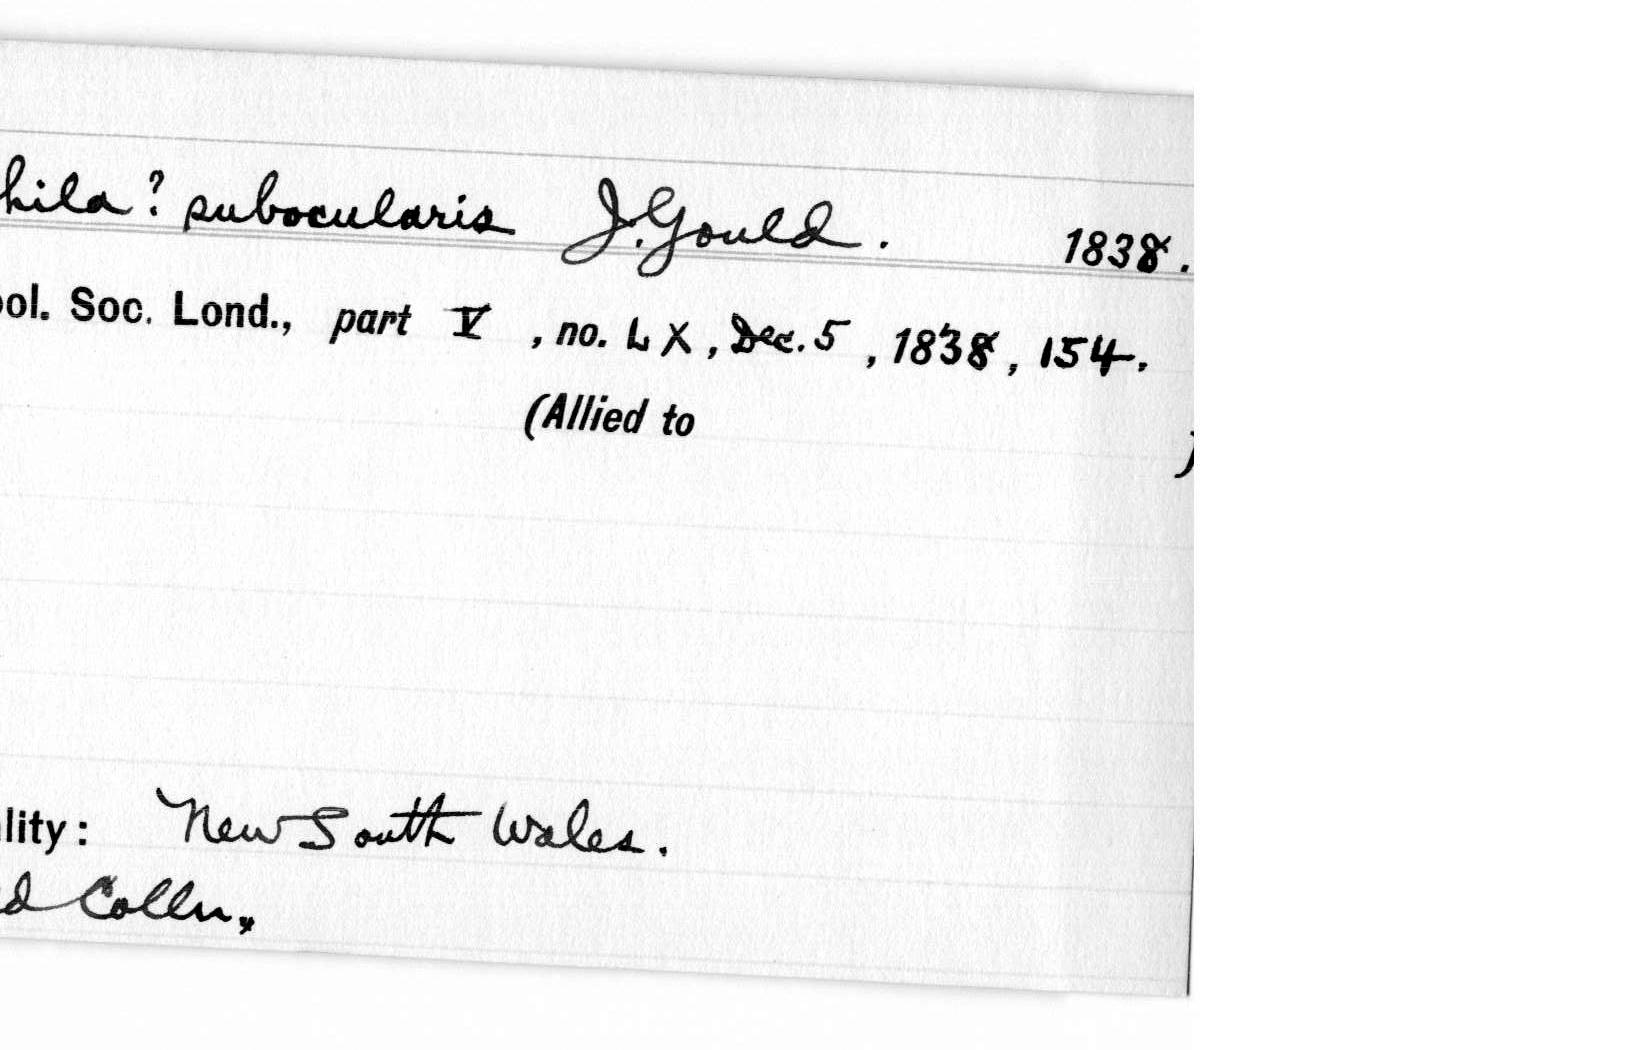 hila? subocularis J. Gould. 1838.
ool. Soc. Lond., part V, no. LX, Dec. 5, 1838, 154.
(Allied to )
lity: New South Wales.
d Colln.